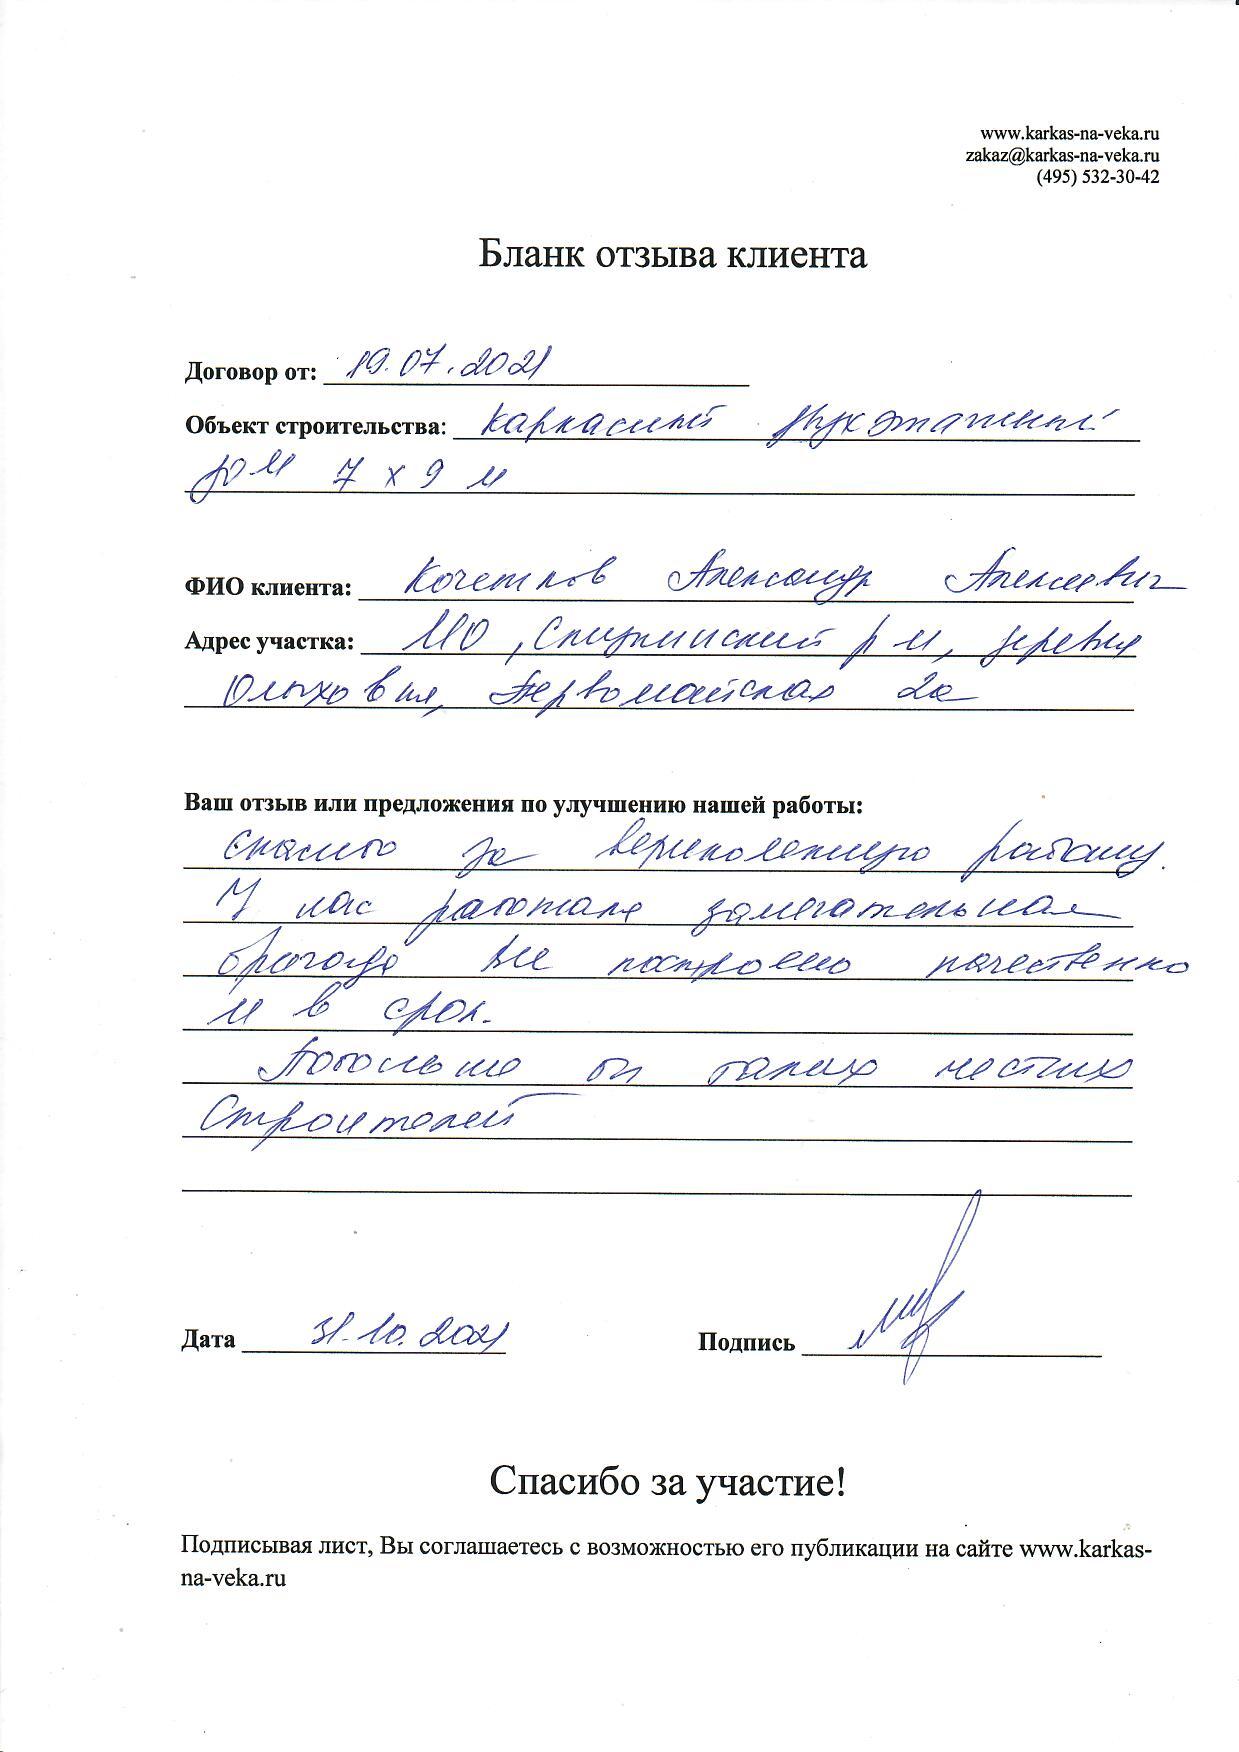 www.karkas-na-veka.ru
zakaz@karkas-na-veka.ru
(495) 532-30-42
Бланк отзыва клиента
Договор от: 19.07.2021
Объект строительства: каркасный двухэтажный
дом 7 х 9 м
ФИО клиента: Кочетков Александр Алексеевич
Адрес участка: МО, р-н, деревня
Первомайская 2а
Ваш отзыв или предложения по улучшению нашей работы:
Спасибо за великолепную работу.
У нас работала замечательная
бригада Все построено качественно
и в срок.
Побольше бы таких честных
Строителей
Дата 31.10.2021 Подпись
Спасибо за участие!
Подписывая лист, Вы соглашаетесь с возможностью его публикации на сайте www.karkas-
na-veka.ru